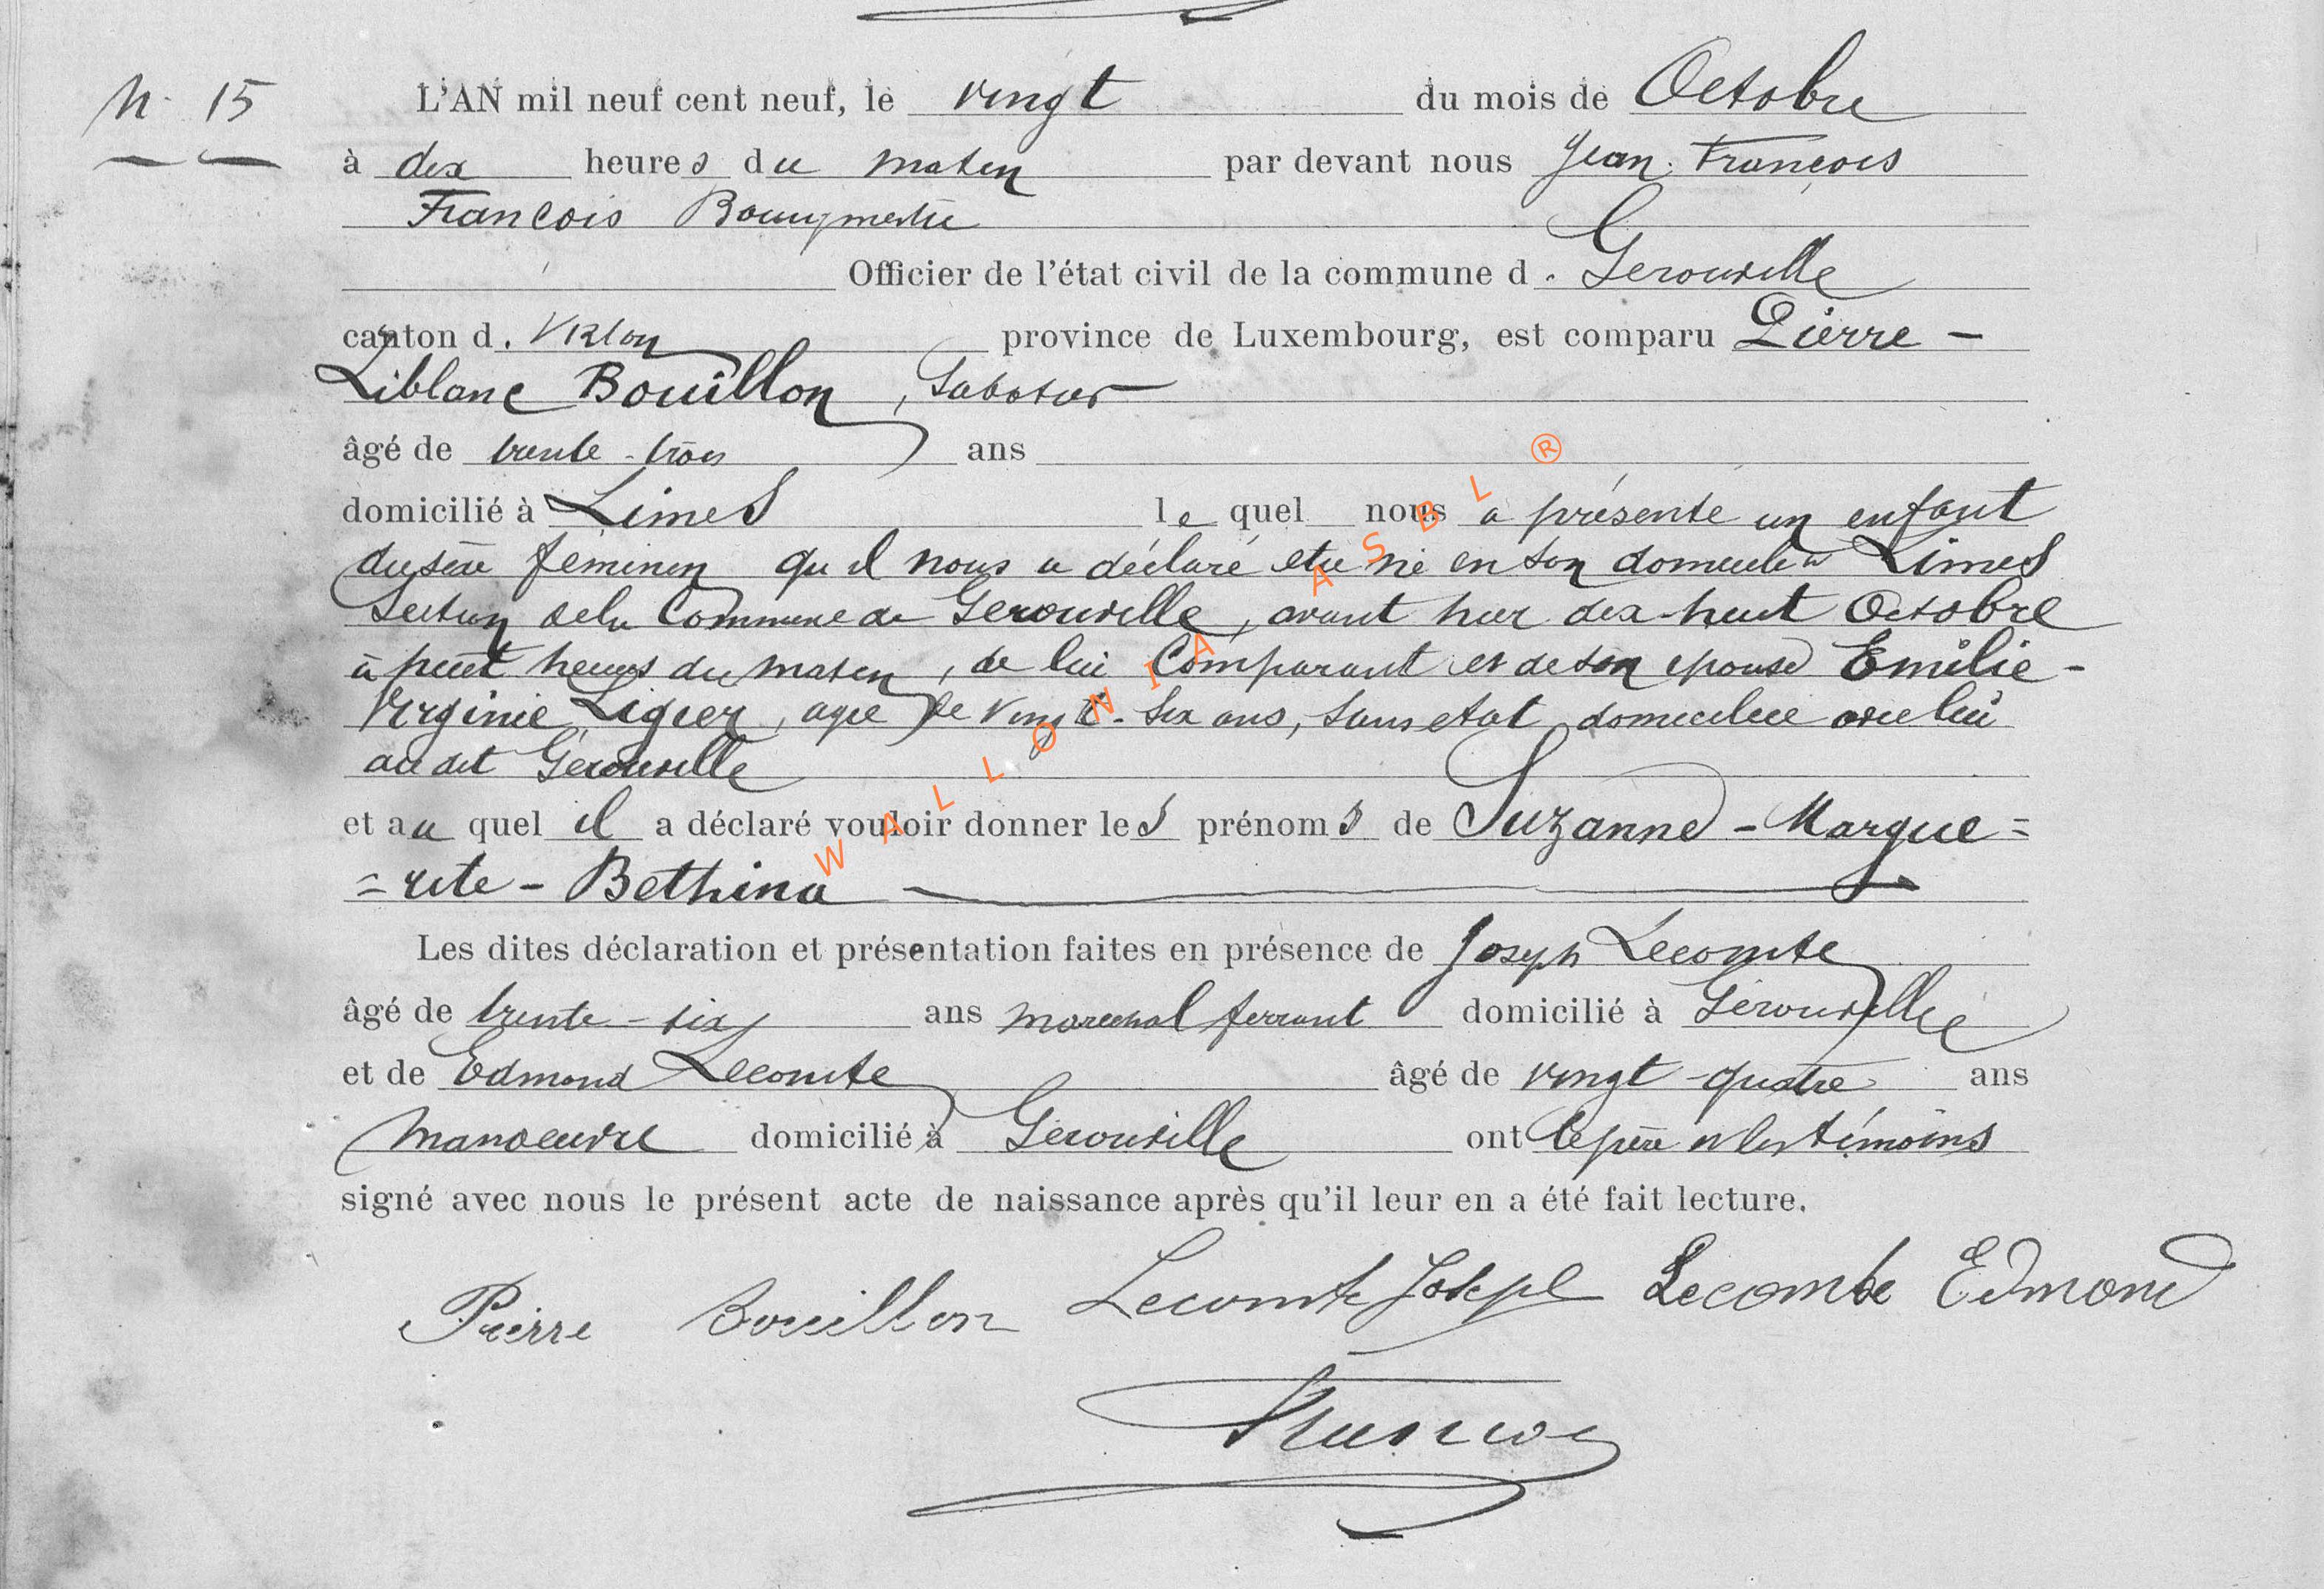 N. 15
L'AN mil neuf cent neuf, le vingt du mois de Octobre
à dix heures du matin par devant nous Jean François
François Bourgmestre
Officier de l'état civil de la commune d. Gérouville
canton d. Virton province de Luxembourg, est comparu Pierre -
Liblanc Bouillon, Sabotier
âgé de trente-trois ans
domicilié à Limes le quel nous a présenté un enfant
du sexe féminin qu'il nous a déclaré etre né en son domicile à Limes
Section de la Commune de Gerouville, avant hier dix-huit Octobre
à huit heures du matin, de lui Comparant et de son epouse Emilie-
Virginie Ligier, agée de vingt-six ans, sans etat domiciliée avec lui
au dit Gérouville
et au quel il a déclaré vouloir donner les prénoms de Suzanne - Margue=
=rite - Bethina
Les dites déclaration et présentation faites en présence de Joseph Lecomte
âgé de trente-six ans maréchal ferrant domicilié à Gérouville
et de Edmond Lecomte âgé de vingt-quatre ans
manoeuvre domicilié à Gérouville ont le père et les témoins
signé avec nous le présent acte de naissance après qu'il leur en a été fait lecture.
Pierre Bouillon Lecomte Joseph Lecomte Edmond
WALLONIA ASBL ®